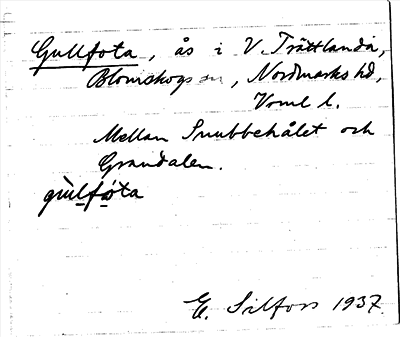 Gullfota, ås i V. Trättlanda,
Blomskogs sn, Nordmarks hd,
Vrml l.
Mellan Snubbehålet och
Grandalen.
gullfota
E. Silfors 1937.